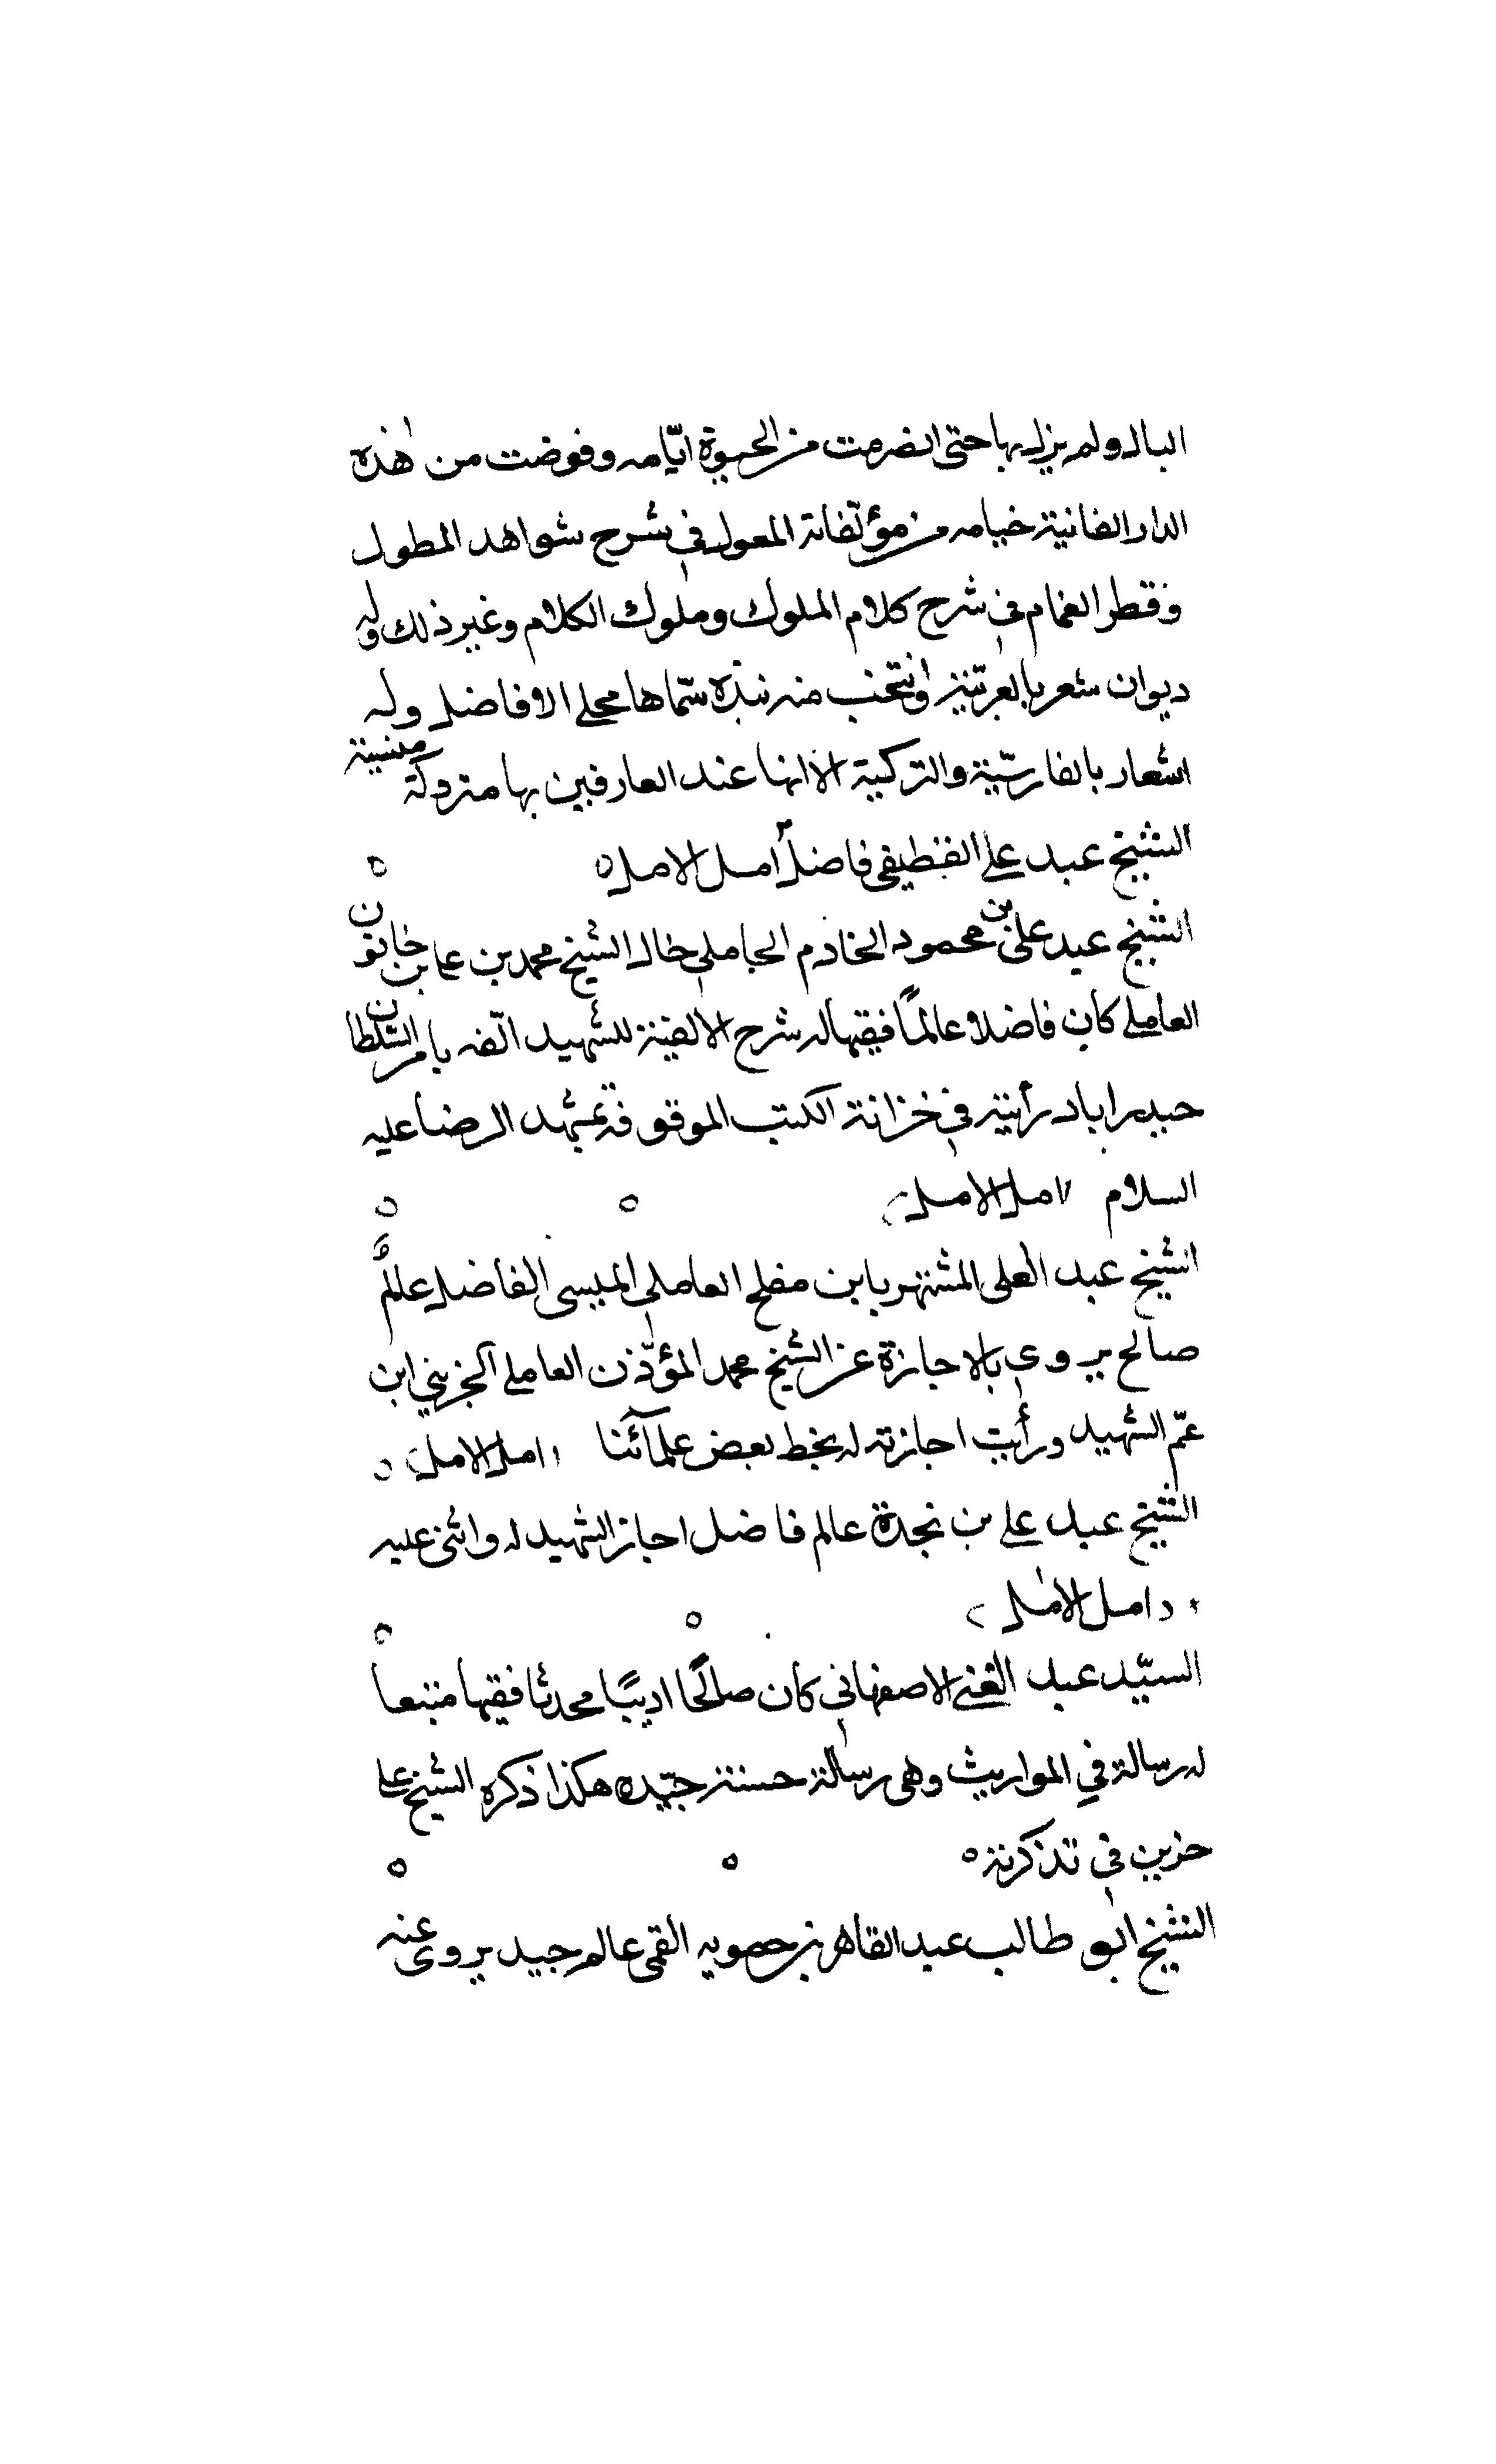 البال ولم يزل بها حتى انصرمت من الحيوة ايّامه وقوضت من هذه
الدار الفانية خيامه من مؤلّفاته المعول في شرح شواهد المطول
وقطر الغمام في شرح كلام الملوك وملوك الكلام وغير ذلك وله
ديوان شعر بالعربيّة وانتخب منه نبذة سمّاها محلى الافاضل وله
اشعار بالفارسيّة والتركية الا انها عند العارفين بها متروكة منسية
الشيخ عبد علي القطيفي فاضل امل الامل ٥ ٥
الشيخ عبد علي بن محمود الخادم الجاملي خال الشيخ محمد بن علي بن خاتون
العاملي كان فاضلا عالمًا فقيها له شرح الالفية للشهيد الّفه بامر السلطان
حيدراباد رأيته في خزانة الكتب الموقوفة بمشهد الرضا عليه
السلام (امل الامل) ٥ ٥
الشيخ عبد العلي المشتهر بابن مفلح العاملي الميسي الفاضل عالمٌ
صالح يروى بالاجازة عن الشيخ محمد المؤذّن العاملي الجزيني ابن
عمّ الشهيد ورأيت اجازته له بخط بعض علمآئنا (امل الامل) ٥
الشيخ عبد علي بن نجدة عالم فاضل اجاز الشهيد له واثنى عليه
(امل الامل) ٥ ٥
السيّد عبد الغني الاصفهاني كان صالحًا اديبًا محدثا فقيها متتبعا
له رسالة في المواريث وهي رسالة حسنة جيّدة هكذا ذكره الشيخ علي
حزين في تذكرته ٥ ٥ ٥
الشيخ ابو طالب عبد القاهر بن حمويه القمي عالم جيد يروى عنه